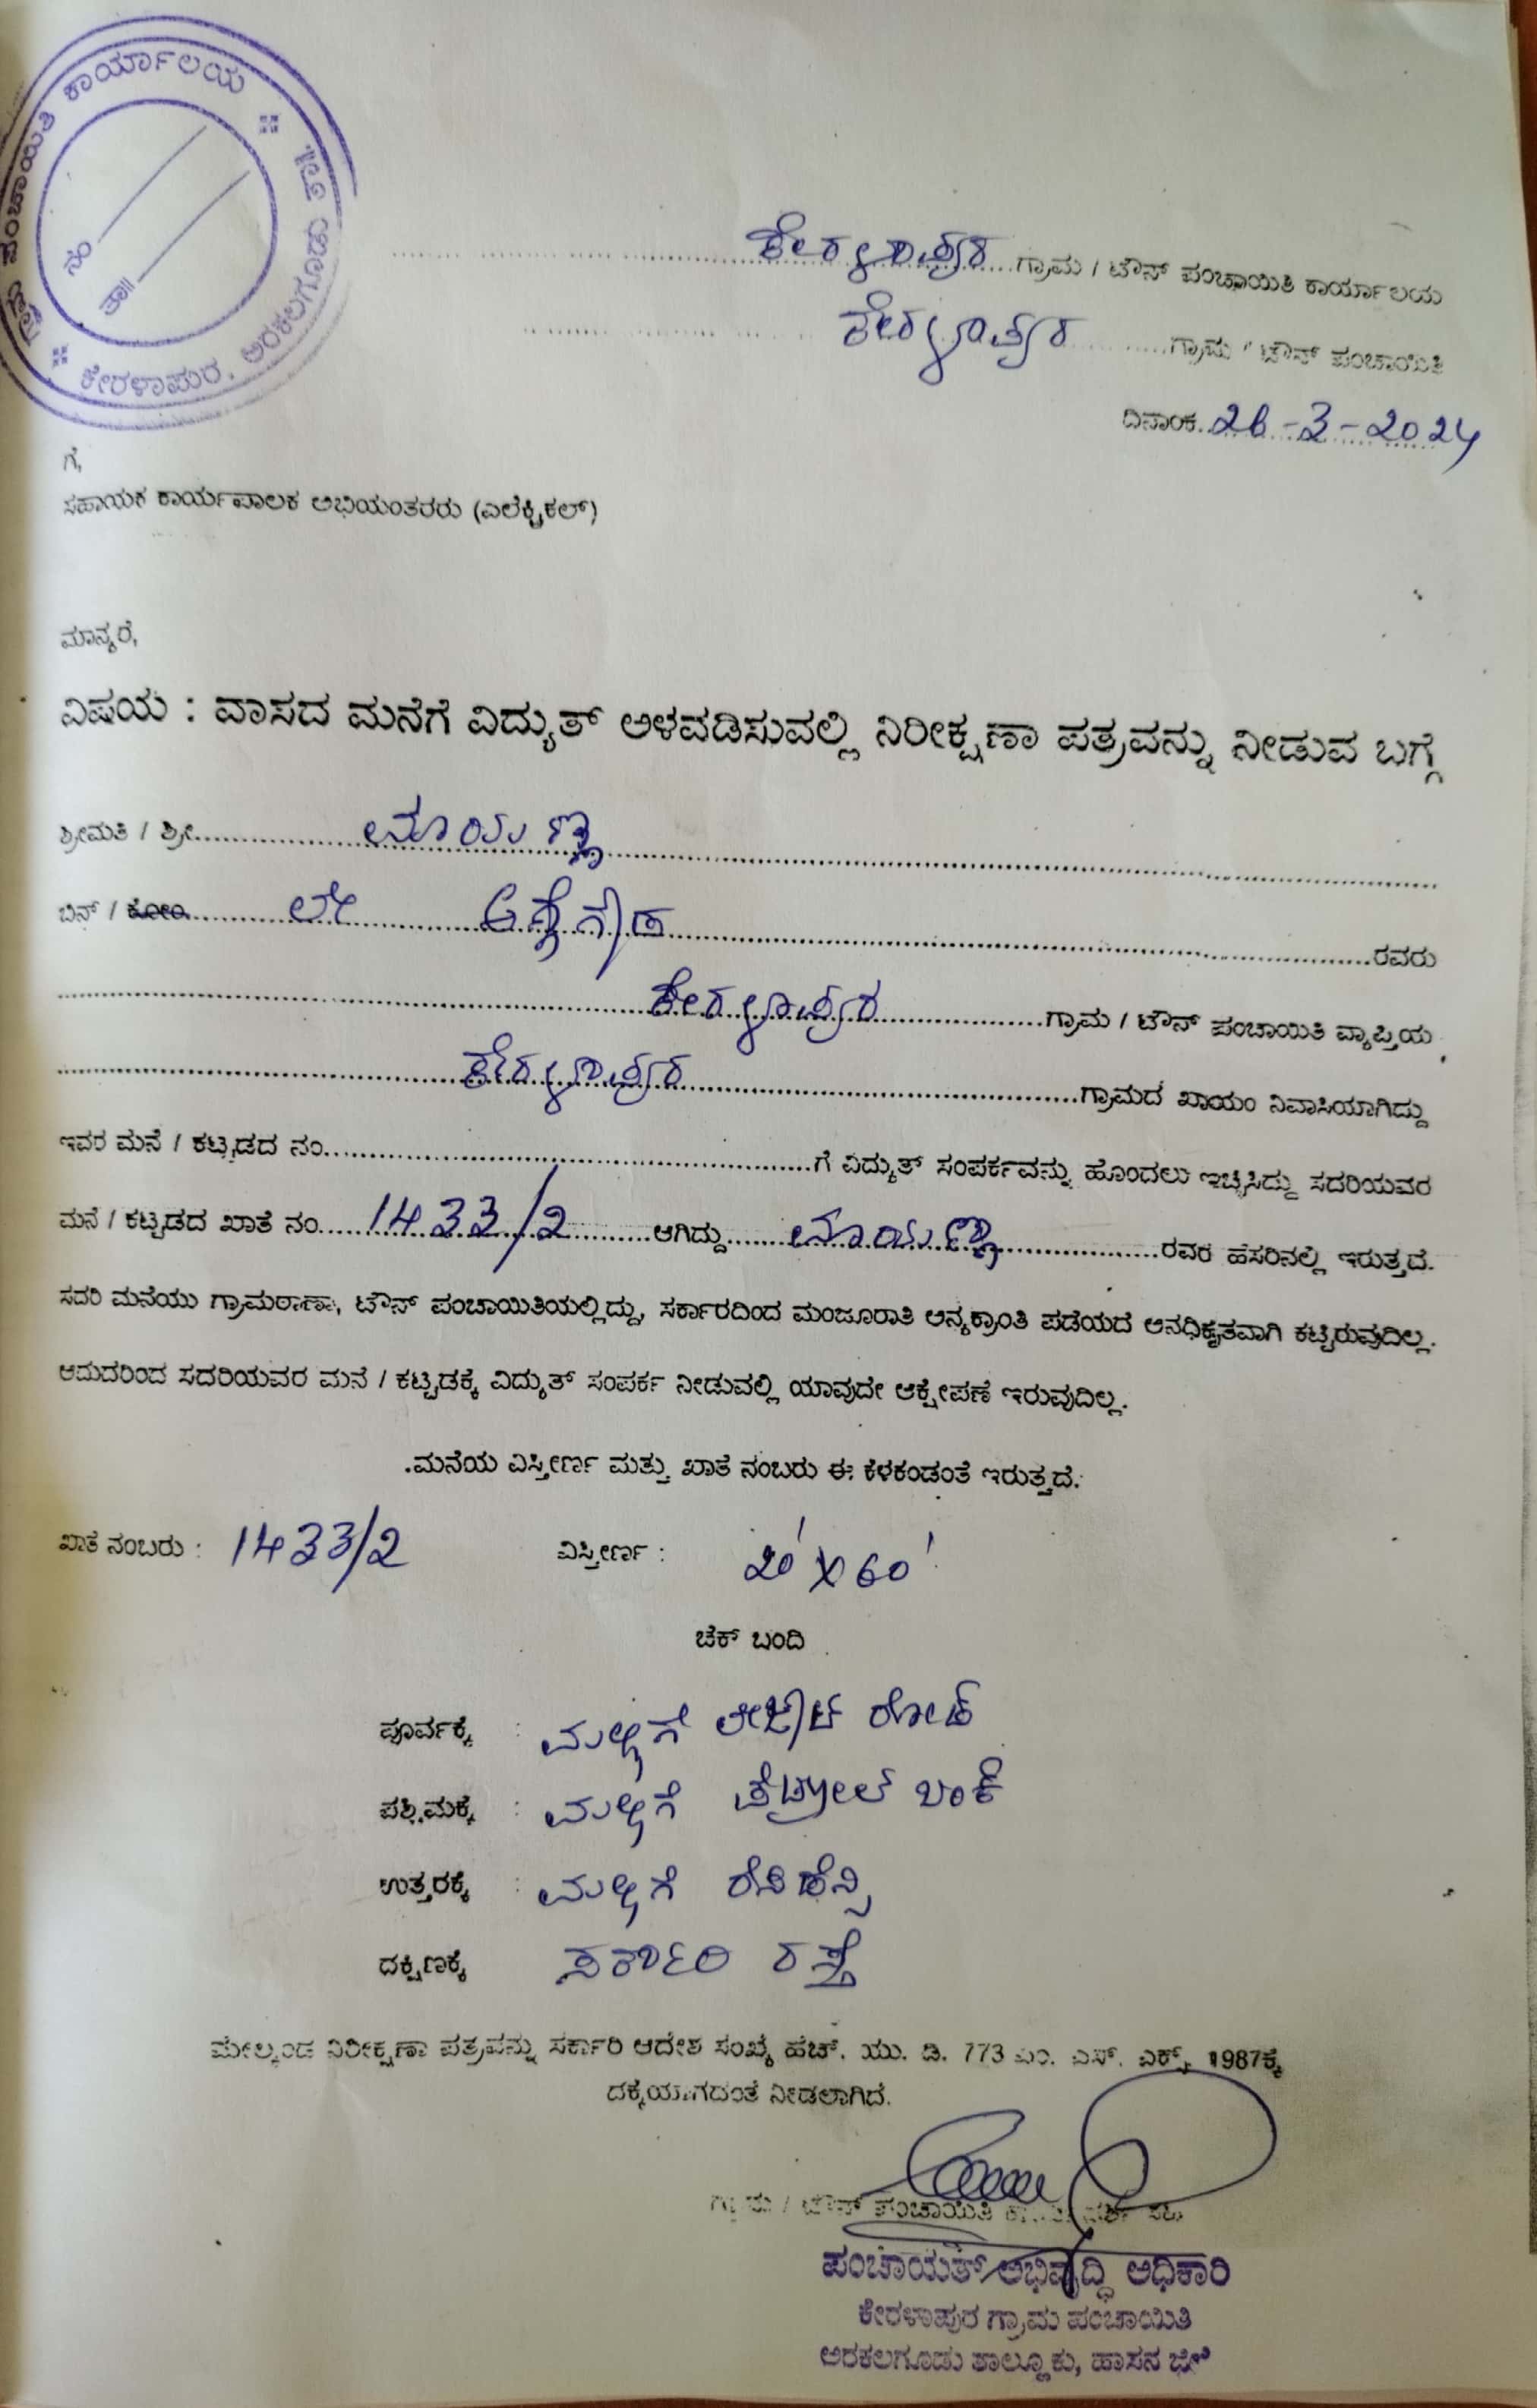 ಗ್ರಾಮ ಪಂಚಾಯಿತಿ ಕಾರ್ಯಾಲಯ
ನಂ
ತಾ॥
ಕೇರಳಾಪುರ. ಅರಕಲಗೂಡು ತಾ॥
ಕೇರಳಾಪುರ ಗ್ರಾಮ / ಟೌನ್ ಪಂಚಾಯಿತಿ ಕಾರ್ಯಾಲಯ
ಕೇರಳಾಪುರ ಗ್ರಾಮ / ಟೌನ್ ಪಂಚಾಯಿತಿ
ದಿನಾಂಕ. 26-3-2024
ಗೆ,
ಸಹಾಯಕ ಕಾರ್ಯಪಾಲಕ ಅಭಿಯಂತರರು (ಎಲೆಕ್ಟ್ರಿಕಲ್)
ಮಾನ್ಯರೆ,
ವಿಷಯ : ವಾಸದ ಮನೆಗೆ ವಿದ್ಯುತ್ ಅಳವಡಿಸುವಲ್ಲಿ ನಿರೀಕ್ಷಣಾ ಪತ್ರವನ್ನು ನೀಡುವ ಬಗ್ಗೆ
ಶ್ರೀಮತಿ / ಶ್ರೀ ಮಾಯಣ್ಣ
ಬಿನ್ / ಕೋಂ ಲೇ
ರವರು
ಕೇರಳಾಪುರ ಗ್ರಾಮ / ಟೌನ್ ಪಂಚಾಯಿತಿ ವ್ಯಾಪ್ತಿಯ
ಕೇರಳಾಪುರ ಗ್ರಾಮದ ಖಾಯಂ ನಿವಾಸಿಯಾಗಿದ್ದು
ಇವರ ಮನೆ / ಕಟ್ಟಡದ ನಂ. ಗೆ ವಿದ್ಯುತ್ ಸಂಪರ್ಕವನ್ನು ಹೊಂದಲು ಇಚ್ಛಿಸಿದ್ದು ಸದರಿಯವರ
ಮನೆ / ಕಟ್ಟಡದ ಖಾತೆ ನಂ. 1433/2 ಆಗಿದ್ದು ಮಾಯಣ್ಣ ರವರ ಹೆಸರಿನಲ್ಲಿ ಇರುತ್ತದೆ.
ಸದರಿ ಮನೆಯು ಗ್ರಾಮಠಾಣಾ, ಟೌನ್ ಪಂಚಾಯಿತಿಯಲ್ಲಿದ್ದು, ಸರ್ಕಾರದಿಂದ ಮಂಜೂರಾತಿ ಅನ್ಯಕ್ರಾಂತಿ ಪಡೆಯದೆ ಅನಧಿಕೃತವಾಗಿ ಕಟ್ಟಿರುವುದಿಲ್ಲ.
ಆದುದರಿಂದ ಸದರಿಯವರ ಮನೆ / ಕಟ್ಟಡಕ್ಕೆ ವಿದ್ಯುತ್ ಸಂಪರ್ಕ ನೀಡುವಲ್ಲಿ ಯಾವುದೇ ಆಕ್ಷೇಪಣೆ ಇರುವುದಿಲ್ಲ.
ಮನೆಯ ವಿಸ್ತೀರ್ಣ ಮತ್ತು ಖಾತೆ ನಂಬರು ಈ ಕೆಳಕಂಡಂತೆ ಇರುತ್ತದೆ.
ಖಾತೆ ನಂಬರು : 1433/2 ವಿಸ್ತೀರ್ಣ : 20' X 60'
ಚೆಕ್ ಬಂದಿ
ಪೂರ್ವಕ್ಕೆ : ಮಲ್ಲಿಗೆ ಲೇಔಟ್ ರೋಡ್
ಪಶ್ಚಿಮಕ್ಕೆ : ಮಲ್ಲಿಗೆ ಪೆಟ್ರೋಲ್ ಬಂಕ್
ಉತ್ತರಕ್ಕೆ : ಮಲ್ಲಿಗೆ ರೆಸಿಡೆನ್ಸಿ
ದಕ್ಷಿಣಕ್ಕೆ ಸರ್ಕಾರಿ ರಸ್ತೆ
ಮೇಲ್ಕಂಡ ನಿರೀಕ್ಷಣಾ ಪತ್ರವನ್ನು ಸರ್ಕಾರಿ ಆದೇಶ ಸಂಖ್ಯೆ ಹೆಚ್. ಯು. ಡಿ. 773 ಎಂ. ಎಸ್. ಎಕ್ಸ್. 1987ಕ್ಕೆ
ದಕ್ಕೆಯಾಗದಂತೆ ನೀಡಲಾಗಿದೆ.
ಗ್ರಾಮ / ಟೌನ್ ಪಂಚಾಯಿತಿ
ಪಂಚಾಯತ್ ಅಭಿವೃದ್ಧಿ ಅಧಿಕಾರಿ
ಕೇರಳಾಪುರ ಗ್ರಾಮ ಪಂಚಾಯಿತಿ
ಅರಕಲಗೂಡು ತಾಲ್ಲೂಕು, ಹಾಸನ ಜಿಲ್ಲೆ